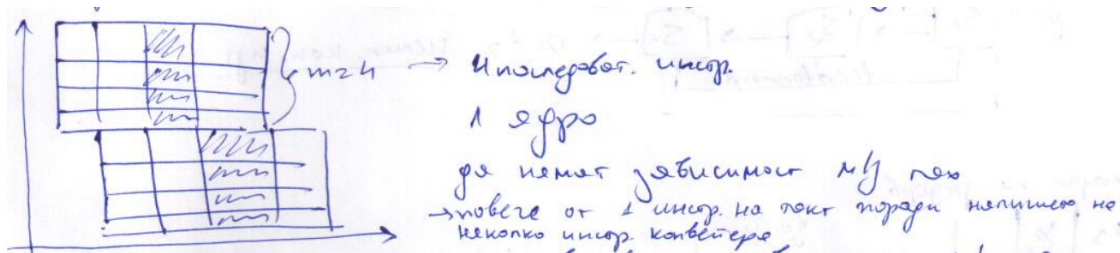 m=4 → 4 последоват. инстр.
1 ядро
да немат зависимост м/у тях
→ повече от 1 инстр. на такт поради наличието на
няколко инстр. конвейера